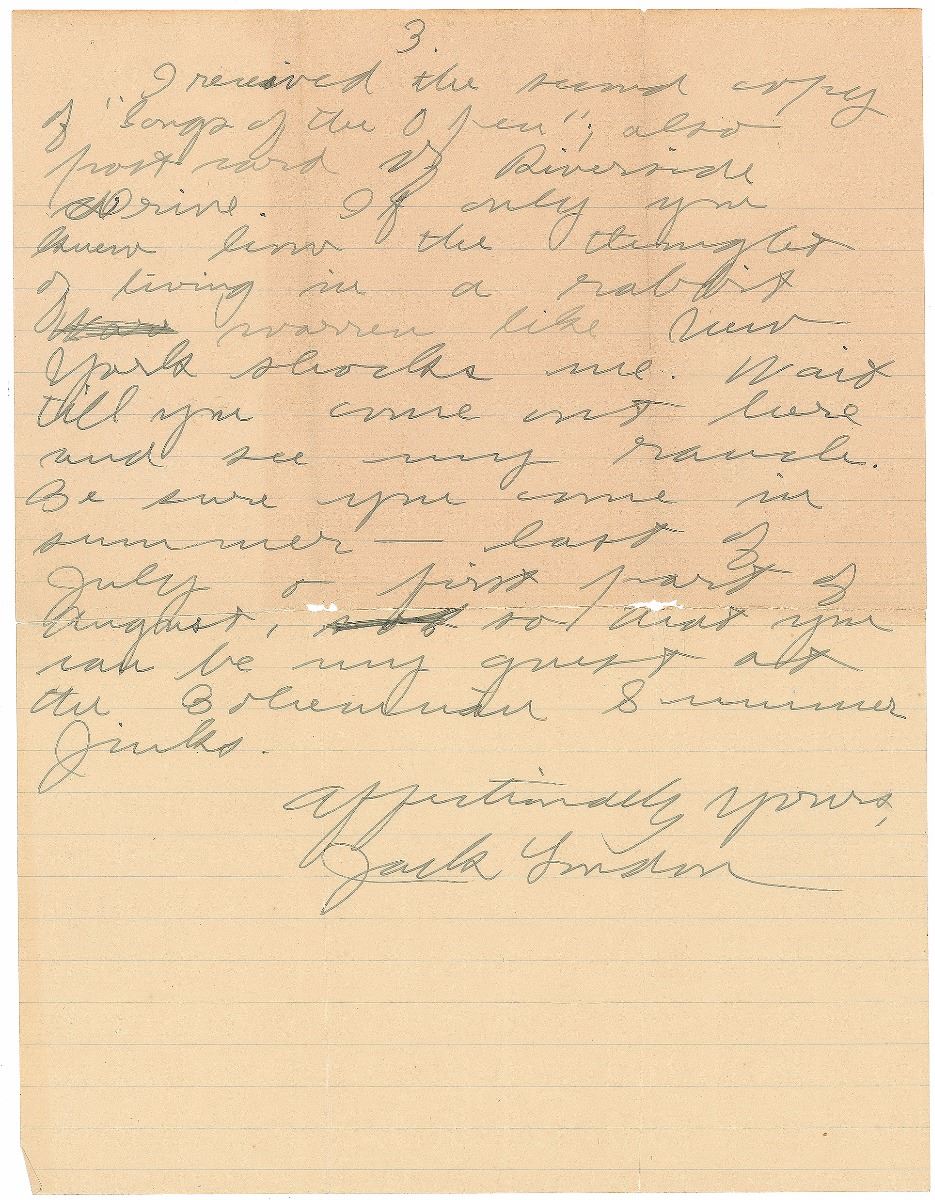 3.
I received the second copy
of "Songs of the Open", also
post card of Riverside
Drive. If only you
knew how the thought
of living in a rabbit
warren like New
York shocks me. Wait
till you come out here
and see my ranch.
Be sure you come in
summer — last of
July o first part of
August, so that you
can be my guest at
the Bohemian Summer
Jinks.
Affectionately yours,
Jack London